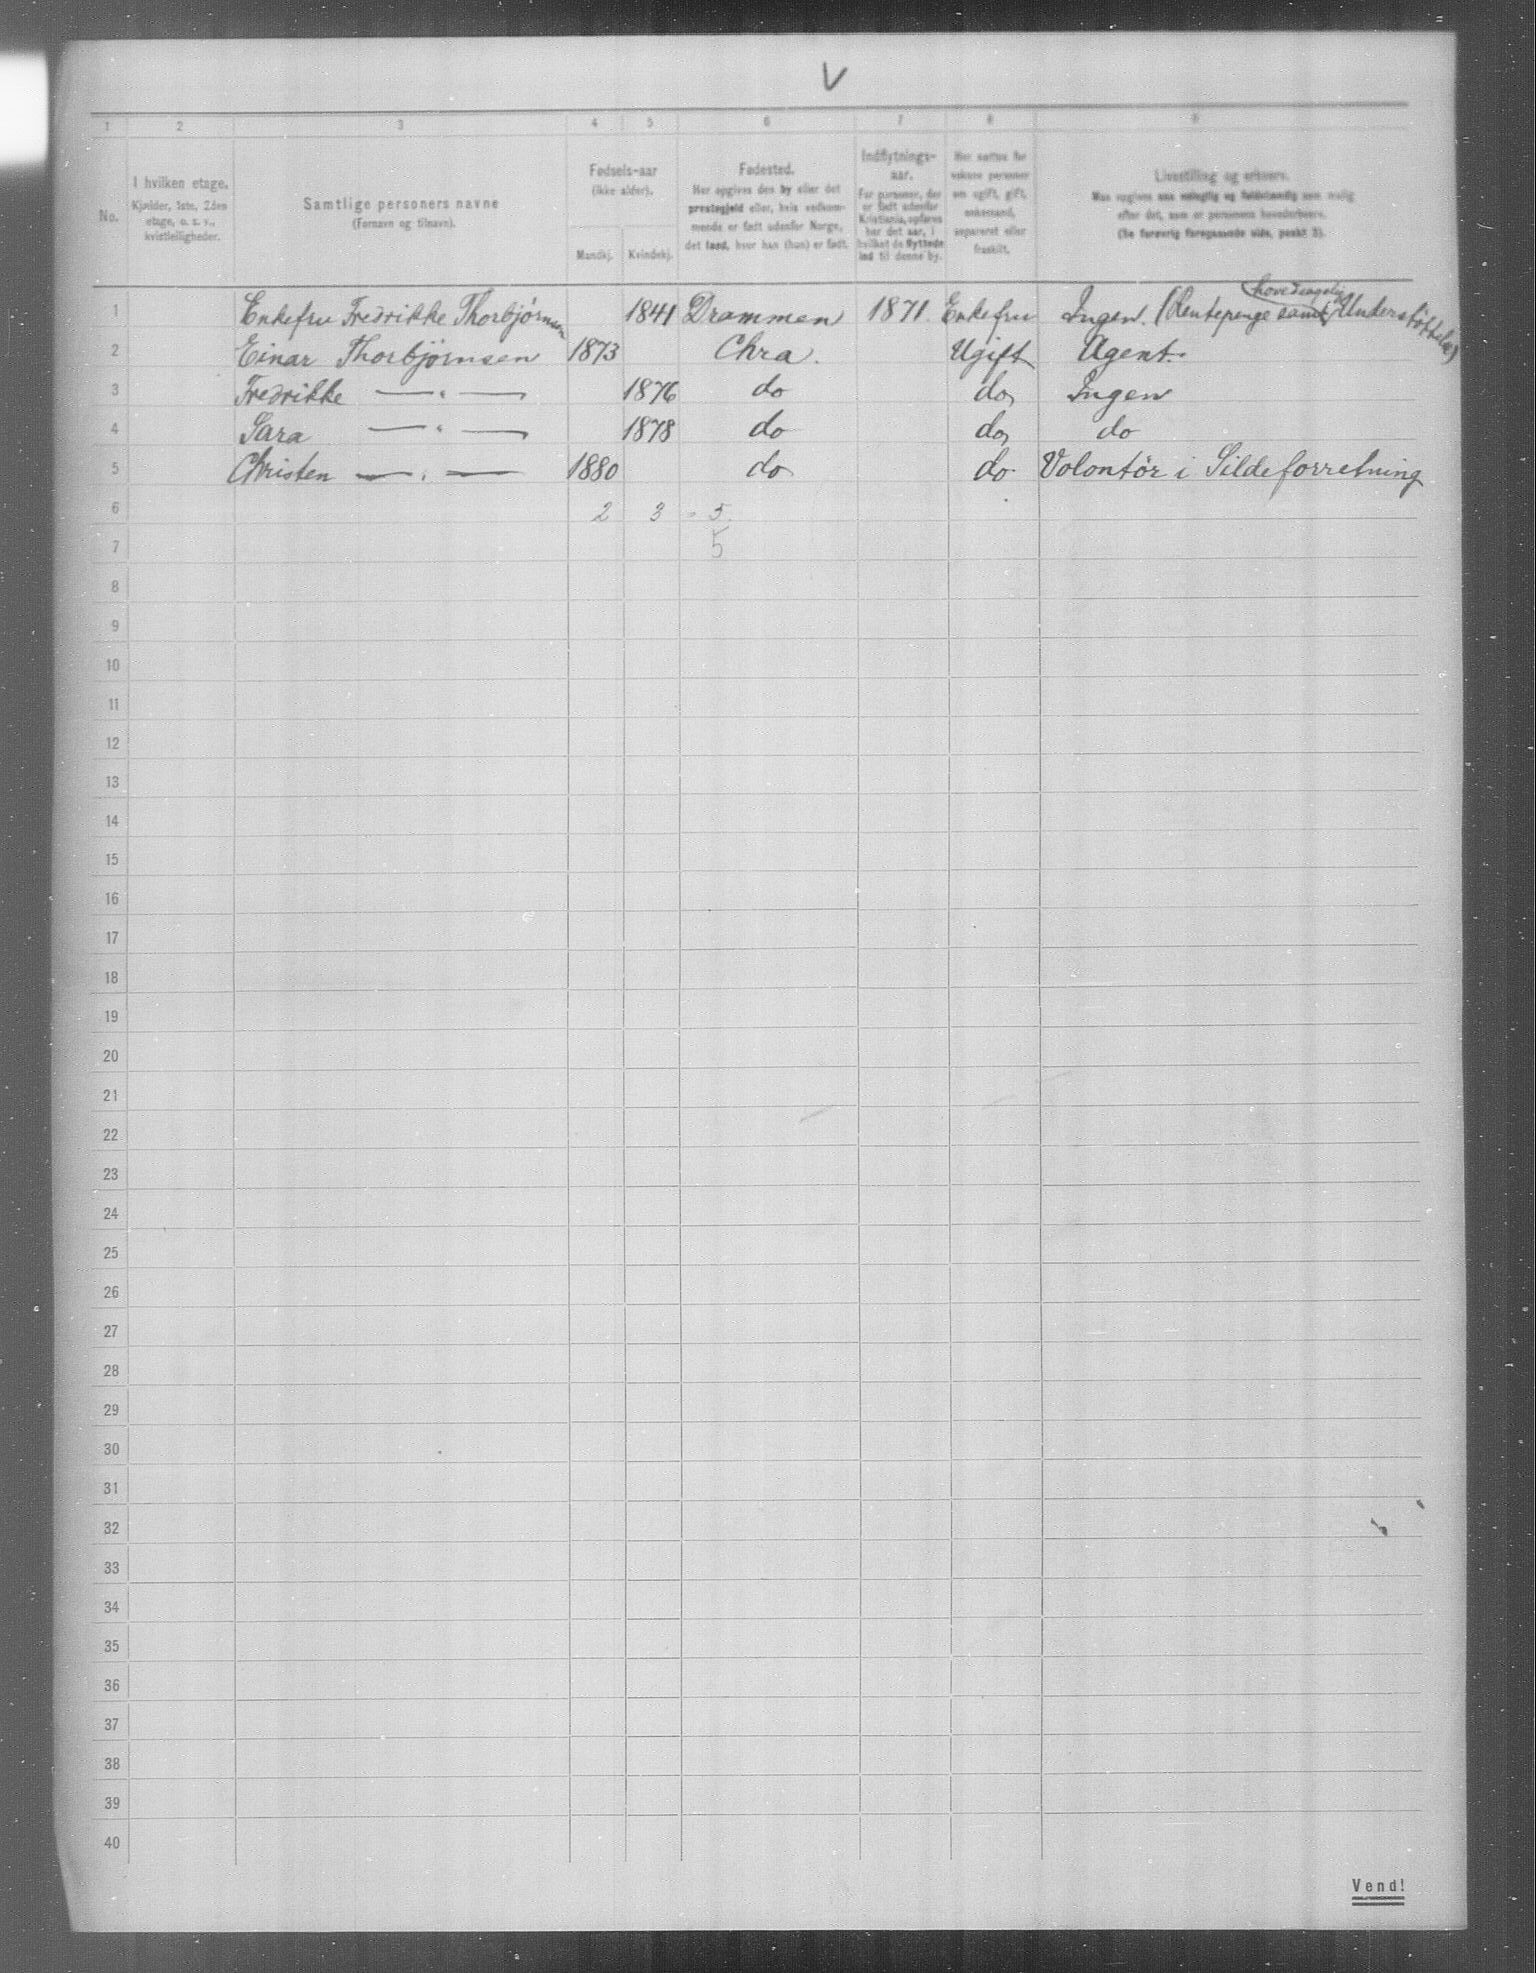 V
1 2 3 4 5 6 7 8 9
No.
I hvilken etage.
Kjælder, 1ste, 2den
etage, o. s. v.,
kvistleiligheder.
Samtlige personers navne
(Fornavn og tilnavn).
Fødsels-aar
(ikke alder).
Mandkj. Kvindekj.
Fødested.
Her opgives den by eller det
prestegjeld eller, hvis vedkom-
mende er født udenfor Norge,
det land, hvor han (hun) er født.
Indflytnings-
aar.
For personer, der
er født udenfor
Kristiania, opføres
her det aar, i
hvilket de flyttede
ind til denne by.
Her sættes for
voksne personer
om ugift, gift,
enkemand,
separeret eller
fraskilt.
Livsstilling og erhverv.
Man opgives saa nøiagtig og fuldstændig som mulig
efter det, som er personens hovederhverv.
(Se forøvrig foregaaende side, punkt 3).
1 Enkefru Fredrikke Thorbjørnsen 1841 Drammen 1871. Enkefru Ingen. (Rentepenge samt hovedsagelig Understøttelse)
2 Einar Thorbjørnsen 1873 Chra. Ugift Agent.
3 Fredrikke — " — 1876 do do Ingen
4 Sara — " — 1878 do do do
5 Christen — " — 1880 do do Volontør i Sildeforretning
6 2 3 = 5
7 5
8
9
10
11
12
13
14
15
16
17
18
19
20
21
22
23
24
25
26
27
28
29
30
31
32
33
34
35
36
37
38
39
40
Vend!